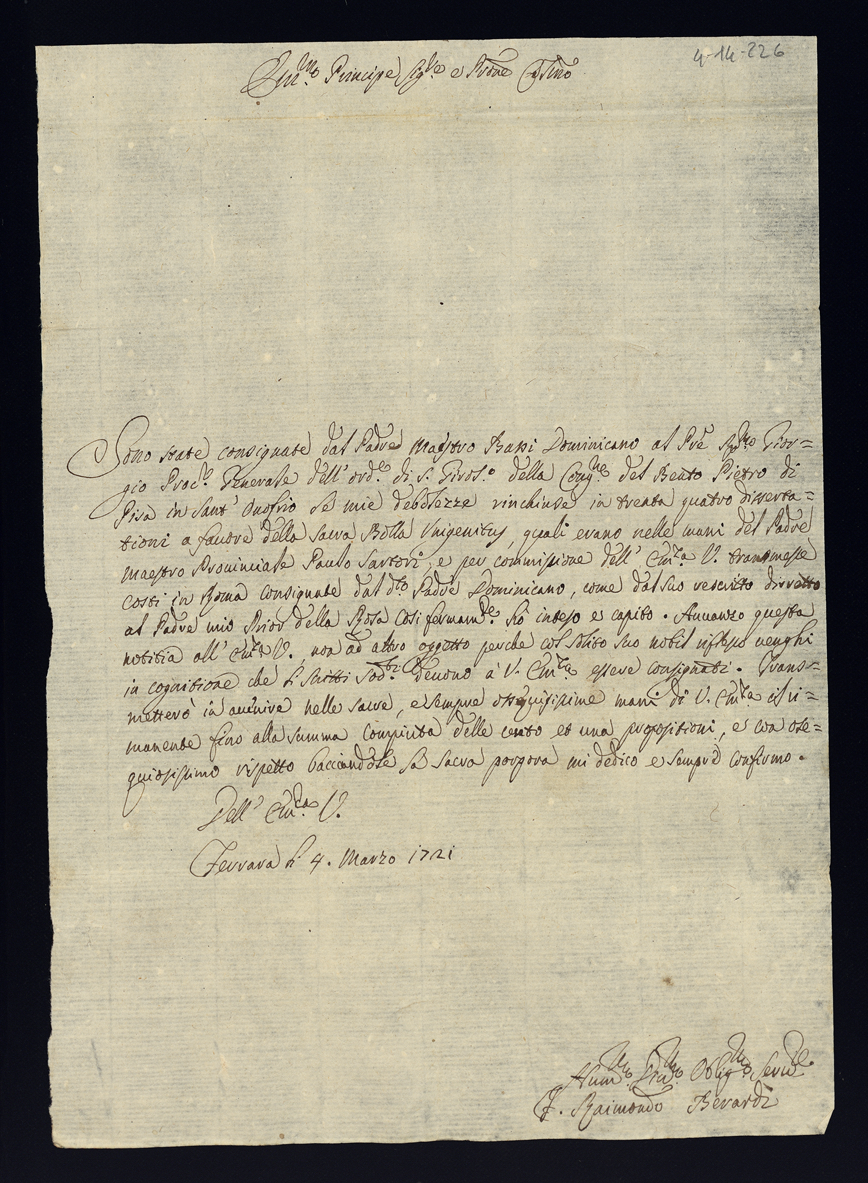 4-14-226
Em.mo Principe Sig.re e Prone Col.mo
Sono state consignate dal Padre Maestro Bassi Dominicano al Pre Gior=
gio Proc.re Generale dell' ord.e di S. Girol.o della Cong.ne del Beato Pietro di
Pisa in Sant' Onofrio le mie debolezze rinchiuse in trenta quatro disserta=
tioni a favore della sacra Bolla Unigenitus, quali erano nelle mani del Padre
Maestro Provinciale Paulo Sartori, e per commissione dell' Em.za V. transmesse
costi in Roma consignate dal d.to Padre Dominicano, come dal suo rescritto diretto
al Padre mio Prior della Rosa cosi fermam.te hò inteso e capito. Avanzo questa
notitia all' Em.za V., non ad altro oggetto perche col solito suo nobil riflesso venghi
in cognitione che li scritti sod.ti devono à V. Em.za essere consignati. Trans=
metterò in avenire nelle sacre, e sempre ossequiosissime mani di V. Em.za il ri=
manente fino alla summa compiuta delle cento et una propositioni, e con osse=
quiosissimo rispetto bacciandole la sacra porpora mi dedico e sempre confirmo.
Dell' Em.za V.
Ferrara li 4. Marzo 1721
Hum.mo Oblig.mo Serv.re
F. Raimondo Berardi